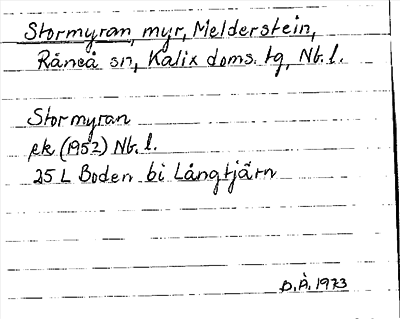 Stormyran, myr, Melderstein,
Råneå sn, Kalix doms. tg, Nb. l.
Stormyran
ek. (1952) Nb. l.
25 L Boden bi Långtjärn
D.Å. 1973